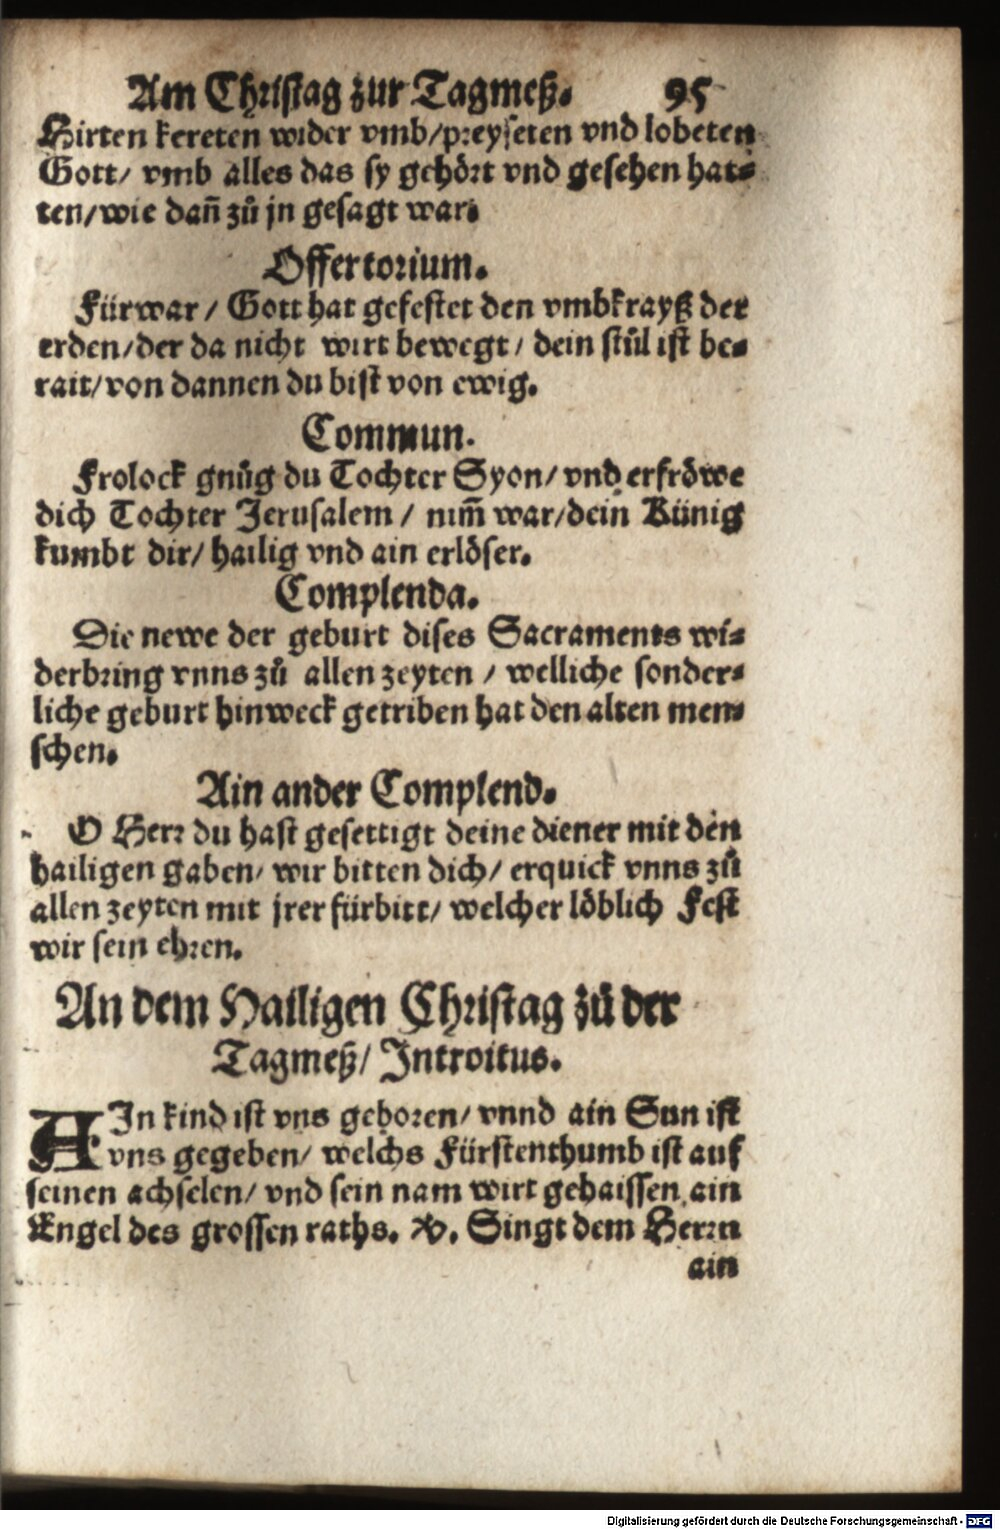 Am Christag zur Tagmeß. 95
Hirten kereten wider vmb/preyseten vnd lobeten
Gott/ vmb alles das sy gehört vnd gesehen hat⸗
ten/wie dañ zů jn gesagt war.
Offertorium.
Fürwar / Gott hat gefestet den vmbkrayß der
erden/der da nicht wirt bewegt/ dein stůl ist be⸗
rait/von dannen du bist von ewig.
Commun.
Frolock gnůg du Tochter Syon/ vnd erfröwe
dich Tochter Jerusalem / nim̃ war/dein Künig
kumbt dir/ hailig vnd ain erlöser.
Complenda.
Die newe der geburt dises Sacraments wi⸗
derbring vnns zů allen zeyten / welliche sonder⸗
liche geburt hinweck getriben hat den alten men⸗
schen.
Ain ander Complend.
O Herr du hast gesettigt deine diener mit den
hailigen gaben/ wir bitten dich/ erquick vnns zů
allen zeyten mit jrer fürbitt/ welcher löblich Fest
wir sein ehren.
An dem Hailigen Christag zů der
Tagmeß/ Introitus.
AIn kind ist vns geboren/ vnnd ain Sun ist
vns gegeben/ welchs Fürstenthumb ist auf
seinen achselen/ vnd sein nam wirt gehaissen ain
Engel des grossen raths. ℣. Singt dem Herrn
ain
Digitalisierung gefördert durch die Deutsche Forschungsgemeinschaft - DFG